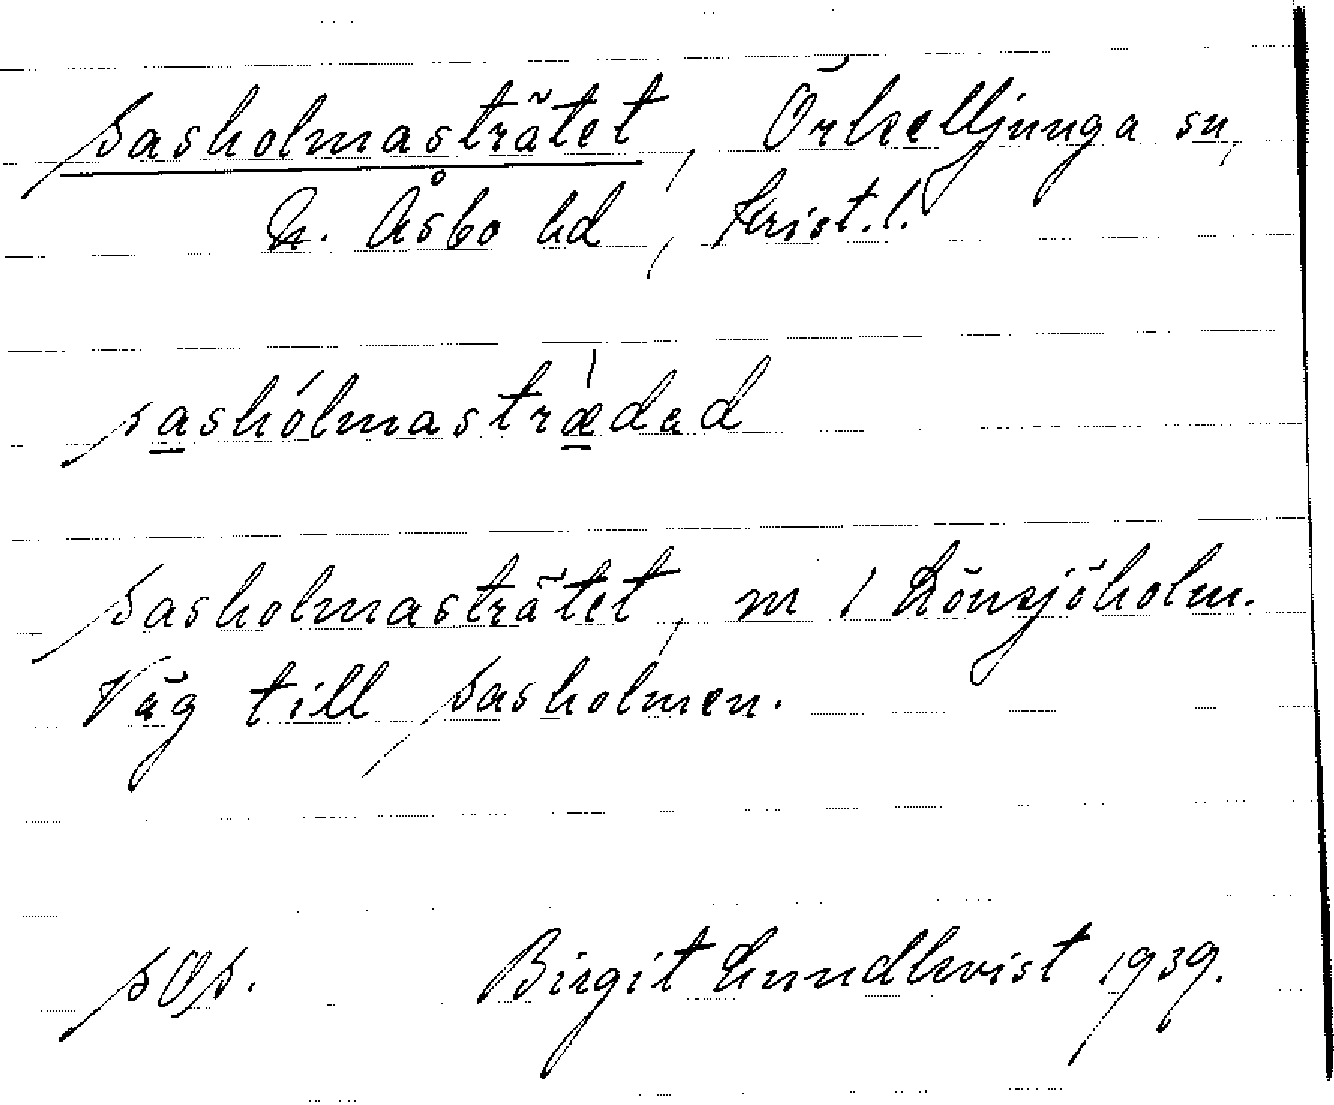 Sasholmasträtet, Örkelljunga sn,
N. Åsbo hd, Krist. l.
sashólmastrædad
Sasholmasträtet, m / Rönsjöholm.
Väg till Sasholmen.
Birgit Lundkvist 1939.